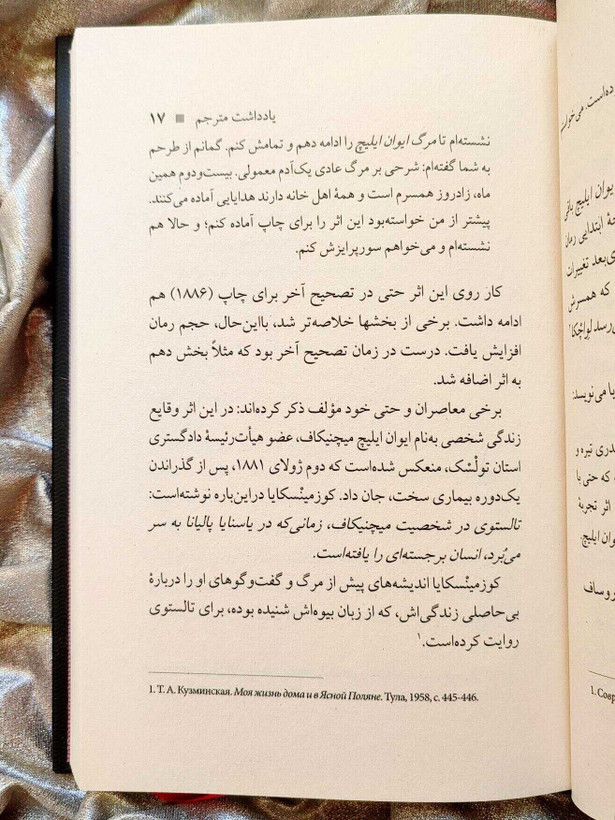 یادداشت مترجم ■ ۱۷
نشسته‌ام تا مرگ ایوان ایلیچ را ادامه دهم و تمامش کنم. گمانم از طرحم
به شما گفته‌ام: شرحی بر مرگ عادی یک‌آدم معمولی. بیست‌ودوم همین
ماه، زادروز همسرم است و همهٔ اهل خانه دارند هدایایی آماده می‌کنند.
پیشتر از من خواسته‌بود این اثر را برای چاپ آماده کنم؛ و حالا هم
نشسته‌ام و می‌خواهم سورپرایزش کنم.
کار روی این اثر حتی در تصحیح آخر برای چاپ (۱۸۸۶) هم
ادامه داشت. برخی از بخشها خلاصه‌تر شد، بااین‌حال، حجم رمان
افزایش یافت. درست در زمان تصحیح آخر بود که مثلاً بخش دهم
به اثر اضافه شد.
برخی معاصران و حتی خود مؤلف ذکر کرده‌اند: در این اثر وقایع
زندگی شخصی به‌نام ایوان ایلیچ میچنیکاف، عضو هیأت‌رئیسهٔ دادگستری
استان تولْسْک، منعکس شده‌است که دوم ژولای ۱۸۸۱، پس از گذراندن
یک‌دوره بیماری سخت، جان داد. کوزمینْسکایا دراین‌باره نوشته‌است:
تالستوی در شخصیت میچنیکاف، زمانی‌که در یاسنایا پالیانا به سر
می‌بُرد، انسان برجسته‌ای را یافته‌است.
کوزمینْسکایا اندیشه‌های پیش از مرگ و گفت‌وگوهای او را دربارهٔ
بی‌حاصلی زندگی‌اش، که از زبان بیوه‌اش شنیده بوده، برای تالستوی
روایت کرده‌است.¹
1. Т. А. Кузминская. Моя жизнь дома и в Ясной Поляне. Тула, 1958, с. 445-446.
ده‌است. می‌خواست
یوان ایلیچ باقی
حهٔ ابتدایی رمان
ی‌بعد تغییرات
که همسرش
ی‌رسد
یا می‌نویسد:
دری تیره و
که حتی با
اثر تجربهٔ
وان ایلیچ
روساف
1. Совр